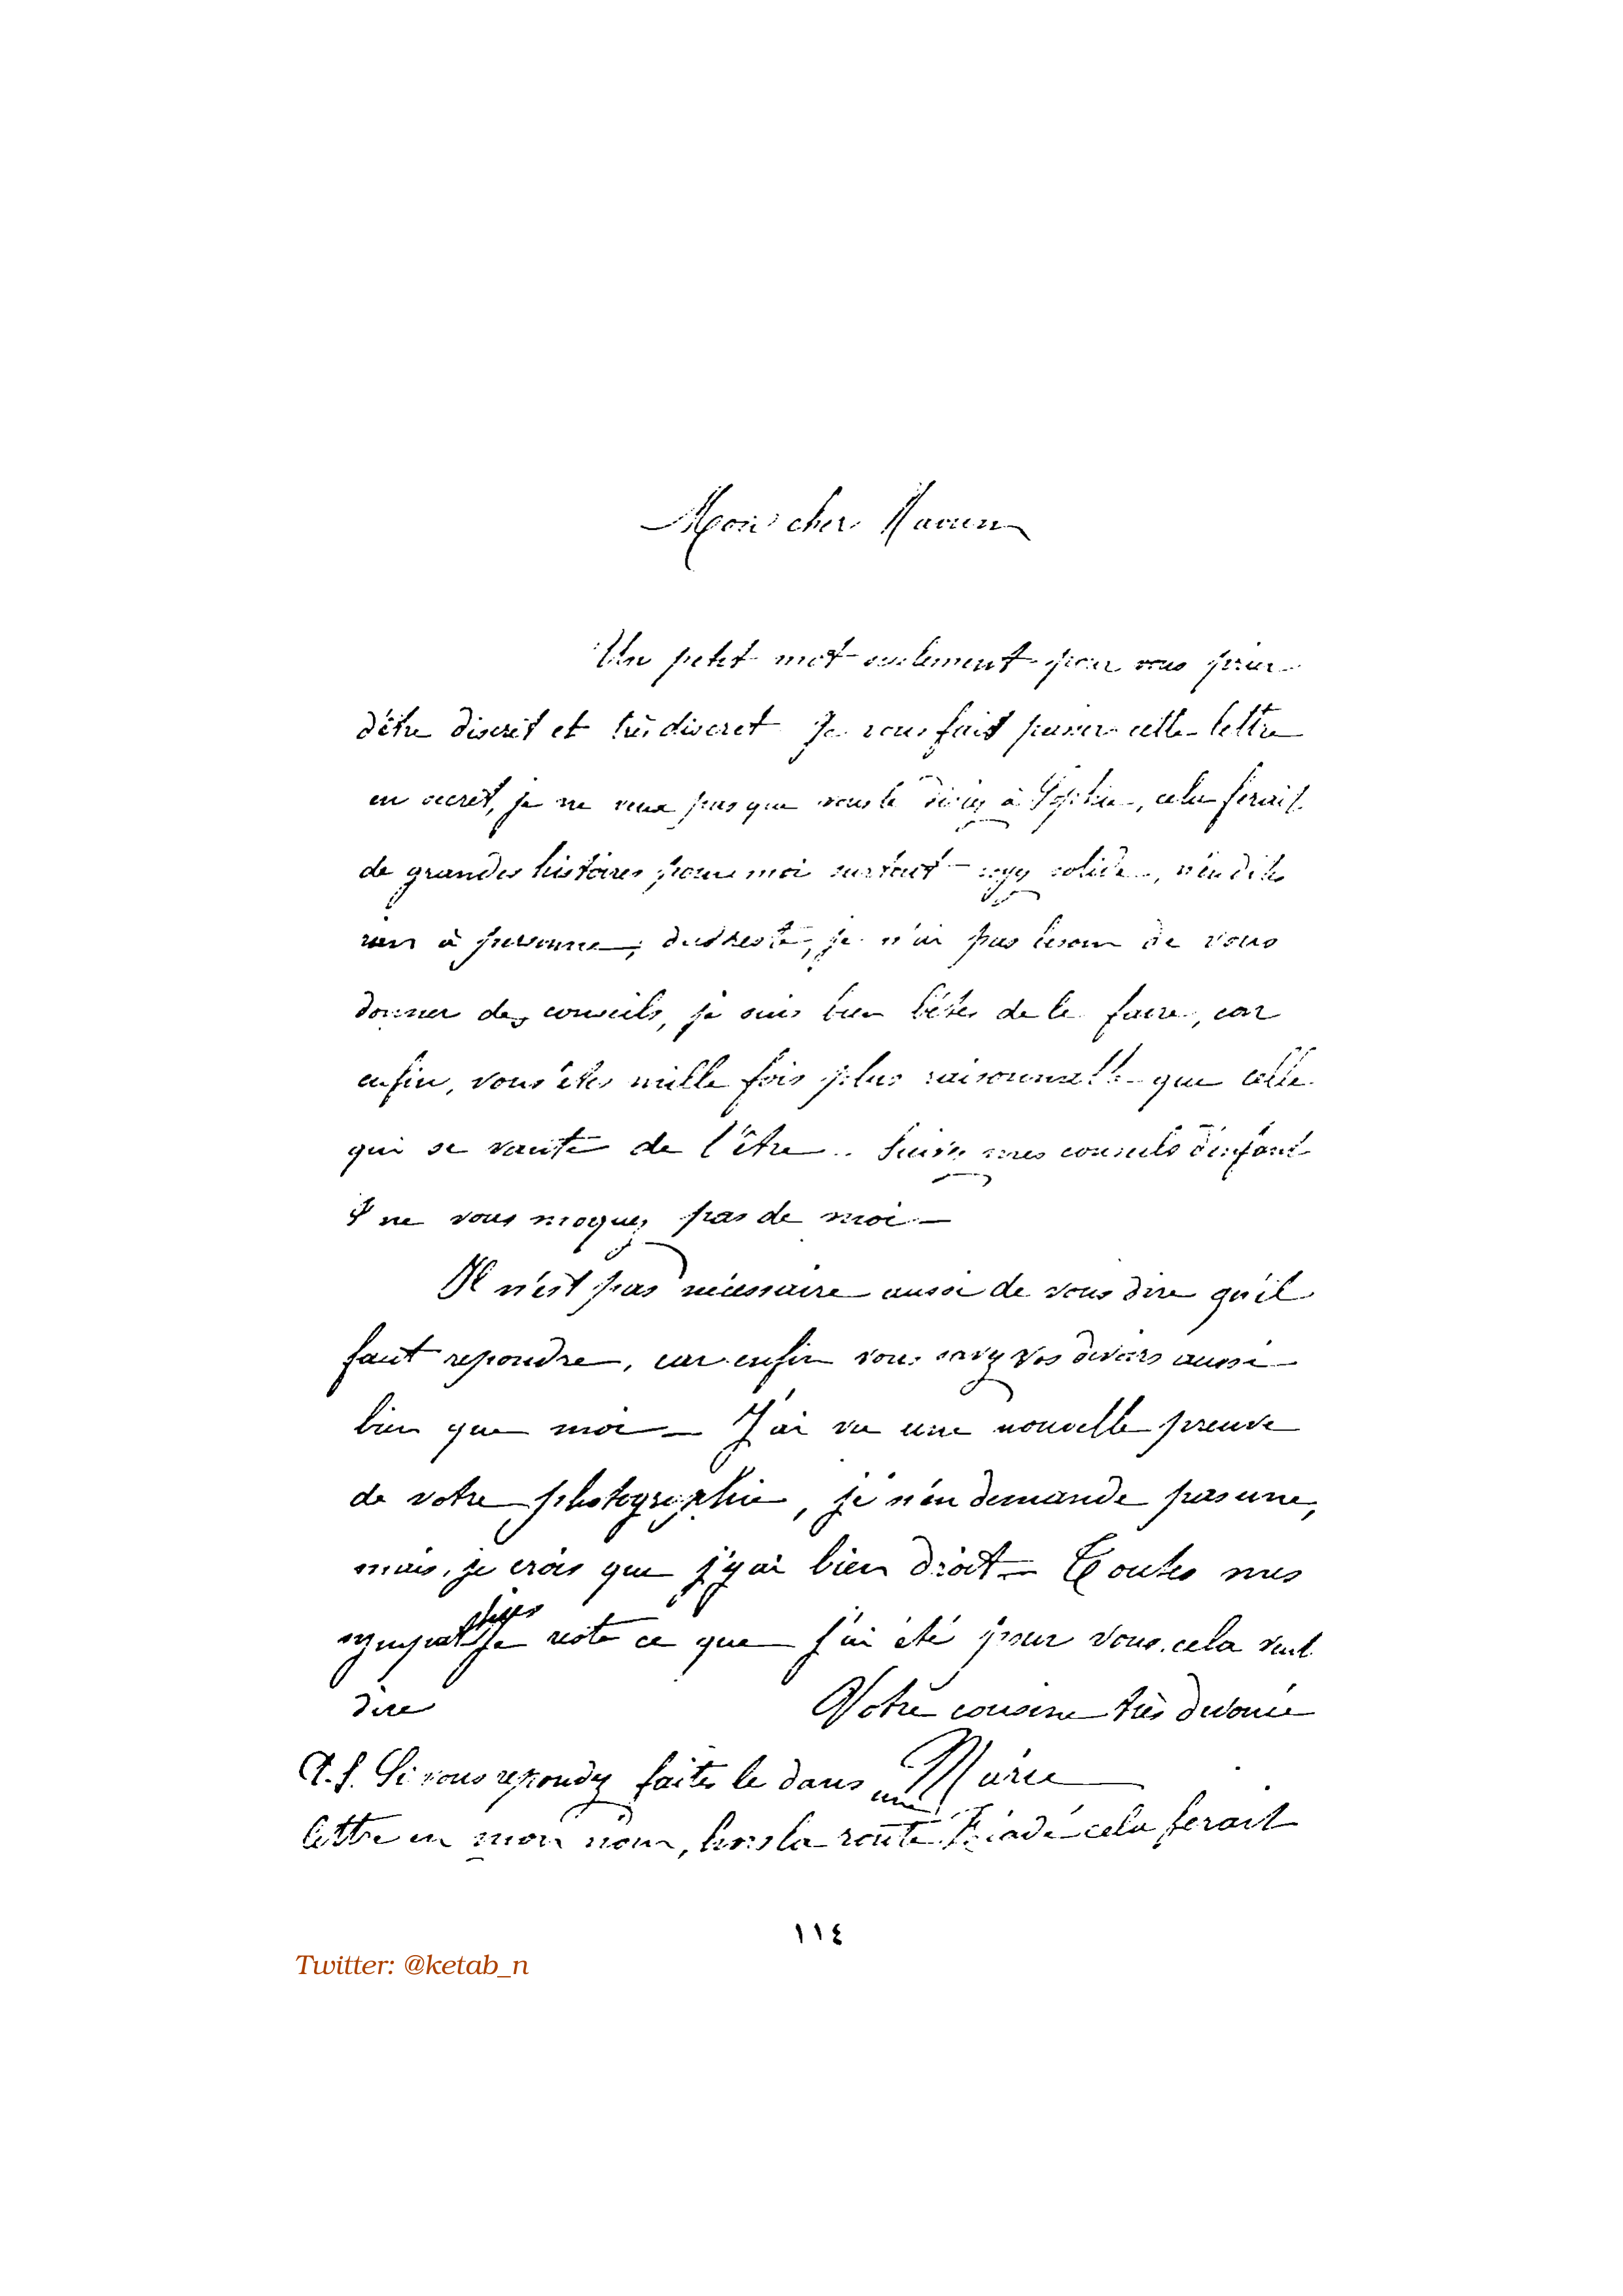 Mon cher Naoum
Un petit mot seulement pour vous prier
d'être discret et très discret Je vous fait passer cette lettre
en secret, je ne veux pas que vous le disiez à Sophie, cela ferait
de grandes histoires pour moi surtout – soyez solide, n'en dites
rien à personne, du reste, je n'ai pas besoin de vous
donner des conseils, je suis bien bête de le faire, car
enfin, vous êtes mille fois plus raisonnable que celle
qui se vante de l'être .. Suivez mes conseils d'enfant
& ne vous moquez pas de moi –
Il n'est pas nécessaire aussi de vous dire qu'il
faut repondre, car enfin vous savez vos devoirs aussi
bien que moi – J'ai vu une nouvelle preuve
de votre photographie, je n'en demande pas une,
mais, je crois que j'y ai bien droit – Toutes mes
sympathies Je reste ce que j'ai été pour vous. cela veut
dire Votre cousine très dévouée
P.S. Si vous repondez faites le dans une Marie
lettre en mon nom, hors la route cela ferait
١١٤
Twitter: @ketab_n